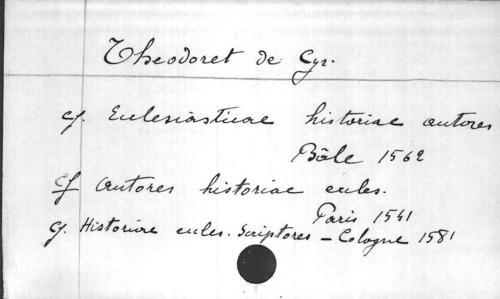 Theodoret de Cyr.
cf. Ecclesiasticae historiae autores
Bâle 1562
Cf Autores historiae eccles.
Paris 1541
cf. Historiae eccles. Scriptores - Cologne 1581